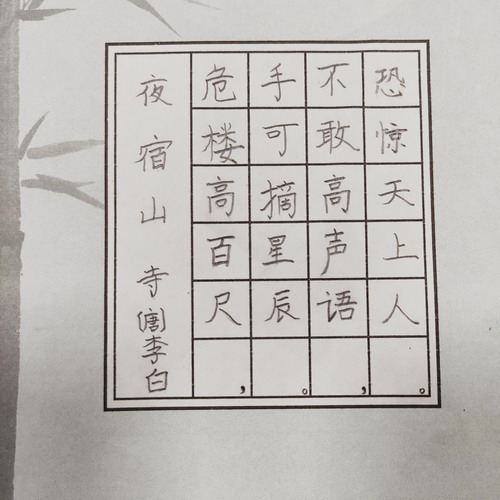 夜宿山寺 唐 李白
危楼高百尺,
手可摘星辰。
不敢高声语,
恐惊天上人。